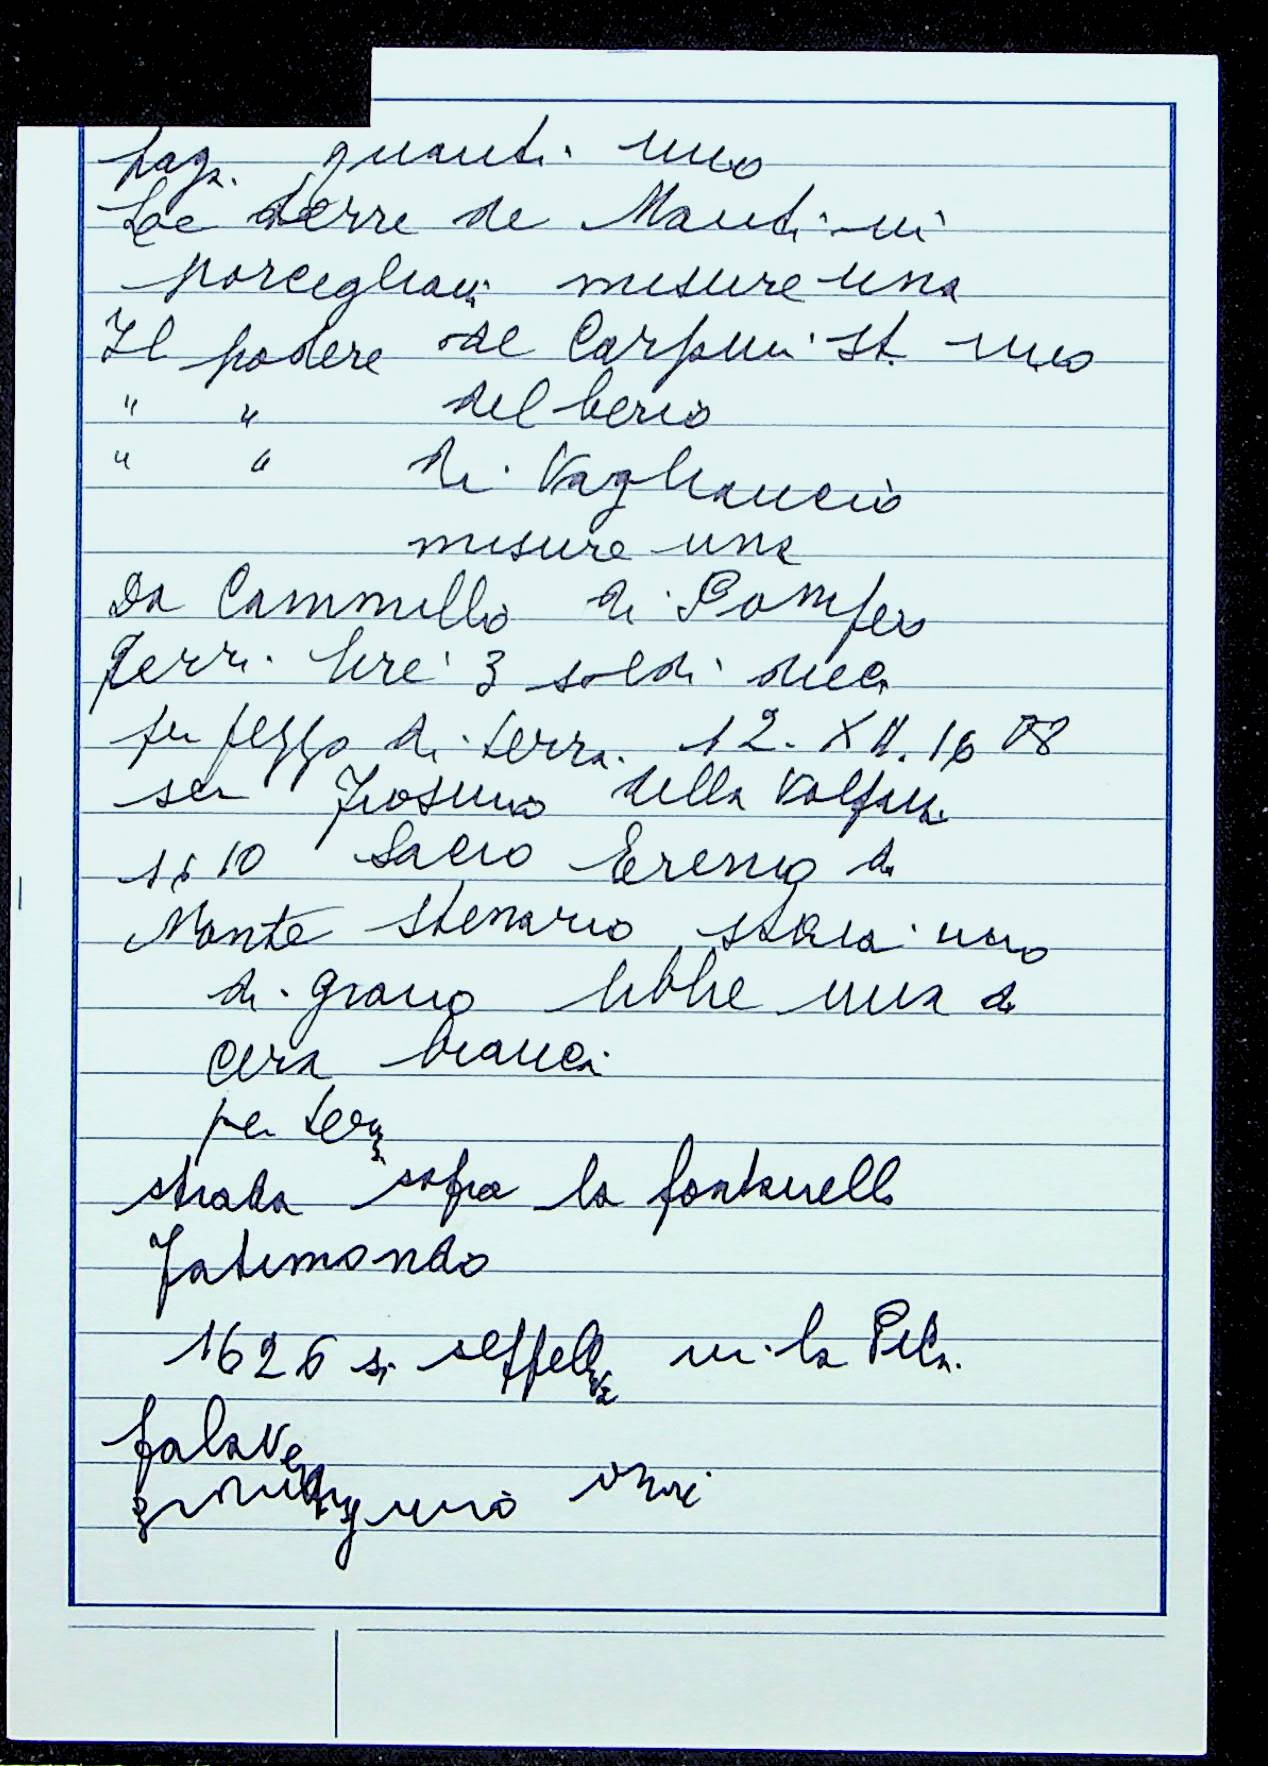 pag. quanti uno
Le terre de Mantini
porcigliani misure una
Il podere de Carpini st. uno
" " del bercio
" " di Vagliaucio
misure una
Da Cammillo di Pompeo
Gerri lire 3 soldi dieci
per pezzo di terra. 12. XII. 16 08
ser Frosino della Volpaia
1610 Sacro Eremo di
Monte Senario staia uno
di grano libbre una di
cera bianca
per terz
strada sopra la fontanella
Fatimondo
1626 si seppelliva in la Pila.